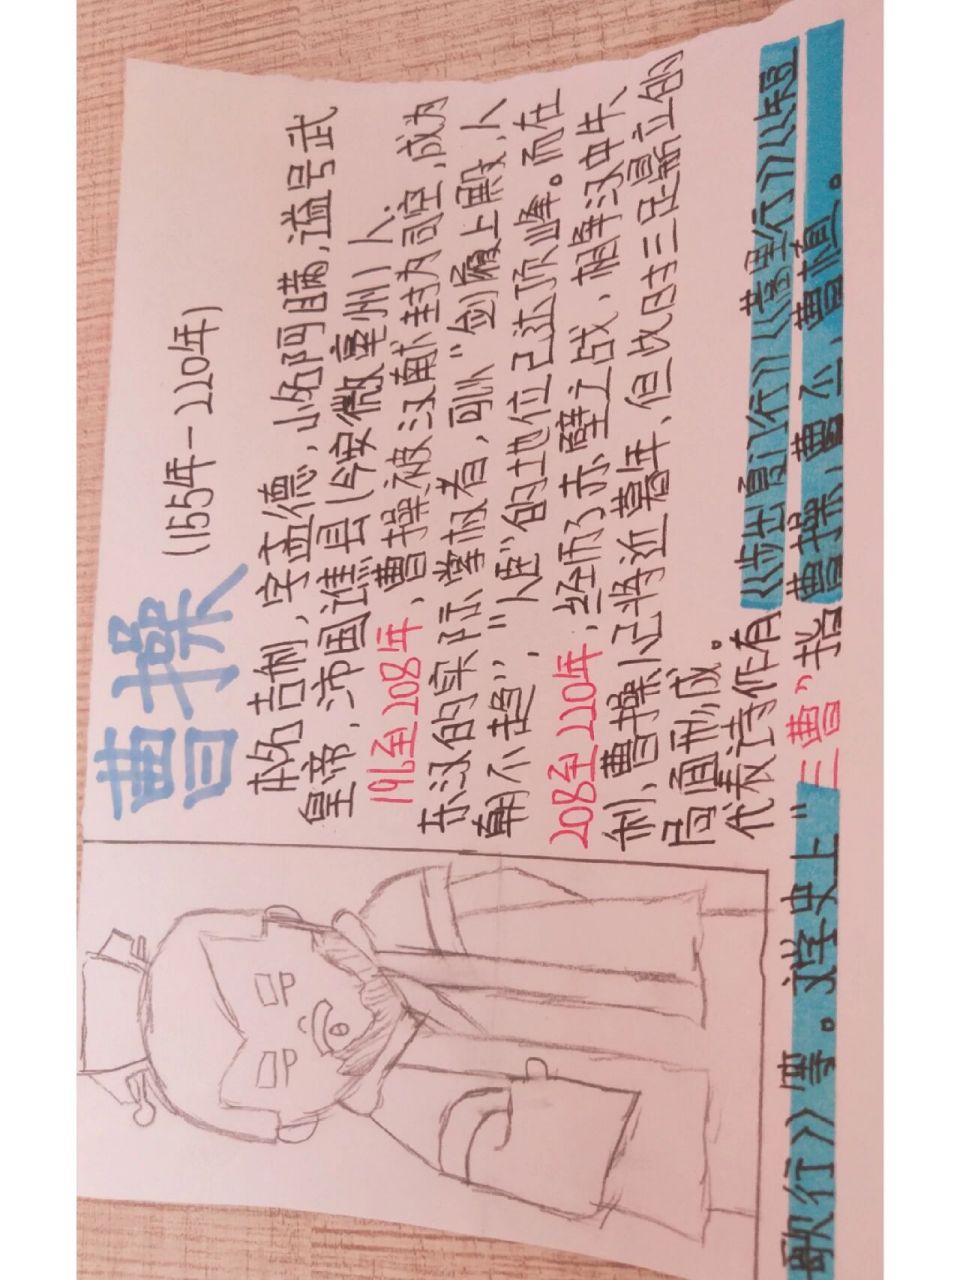 曹操
(155年-220年)
本名吉利,字孟德,小名阿瞒,谥号武
皇帝,沛国谯县(今安徽亳州)人。
191至208年,曹操被汉献封为司空,成为
东汉的实际掌权者,可以"剑履上殿,人
朝不趋","人臣"的地位已达顶峰。而在
208至220年,经历了赤壁之战、相峰汉中失
利、曹操人已将近暮年,但此时三足鼎立的
局面形成。
代表诗作有《步出夏门行》《蒿里行》《短
歌行》等。文学史上"三曹"指曹操,曹丕,曹植。